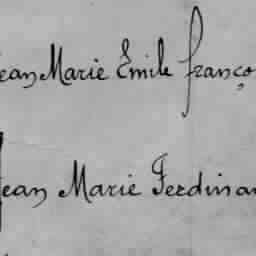 ean Marie Emile Franço
Jean Marie Ferdinan